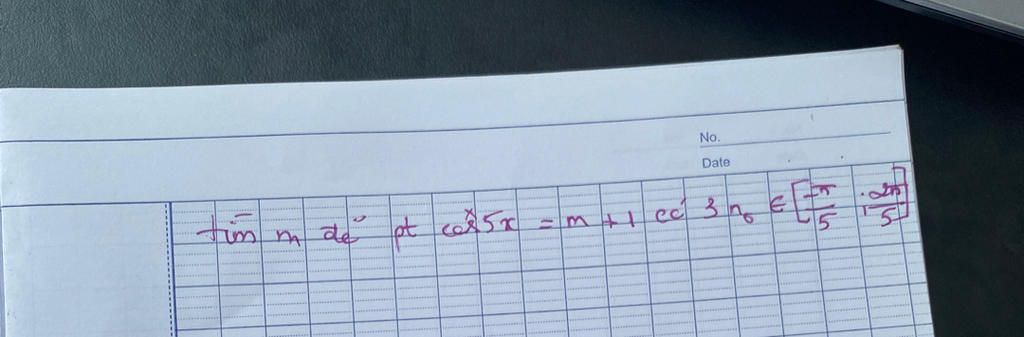 No.
Date
tìm m để pt cos 5x = m + 1 có 3 n₀ ∈ [-π/5 ; 2π/5]